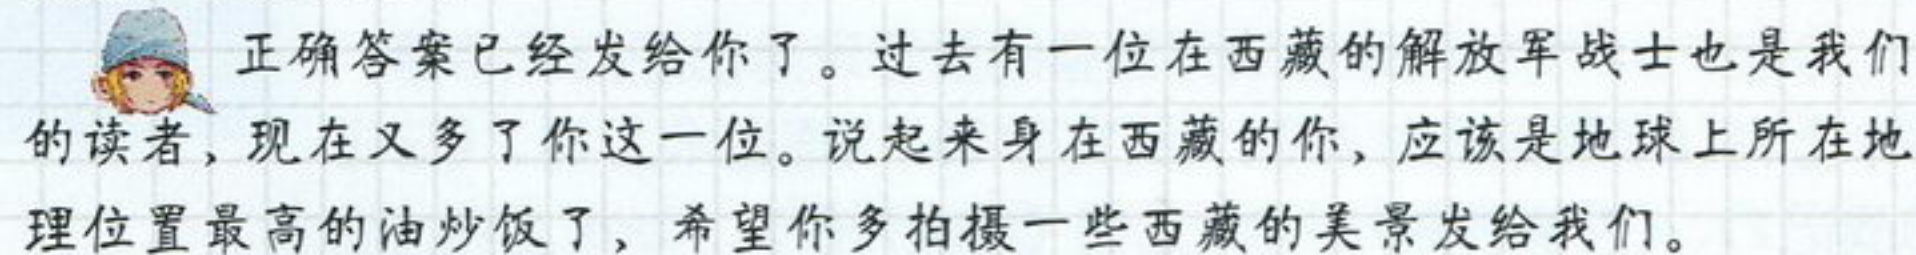 正确答案已经发给你了。过去有一位在西藏的解放军战士也是我们
的读者，现在又多了你这一位。说起来身在西藏的你，应该是地球上所在地
理位置最高的油炒饭了，希望你多拍摄一些西藏的美景发给我们。